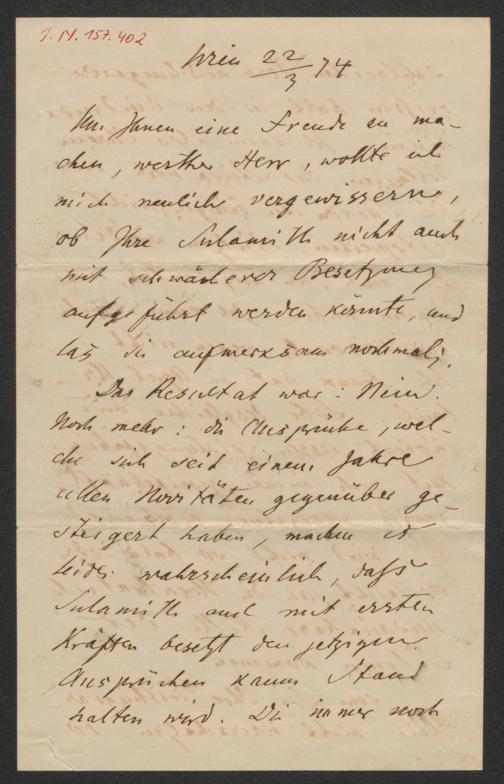 I.N. 157.402
Wien 22/3 74
Um Ihnen eine Freude zu ma-
chen, werther Herr, wollte ich
mich neulich vergewissern,
ob Ihre Sulamith nicht auch
mit schwächerer Besetzung
aufgeführt werden könnte, und
las sie aufmerksam nochmals.
Das Resultat war: Nein.
Noch mehr: die Ansprüche, wel-
che sich seit einem Jahre
allen Novitäten gegenüber ge-
steigert haben, machen es
leider wahrscheinlich, dass
Sulamith auch mit ersten
Kräften besetzt den jetzigen
Ansprüchen kaum Stand
halten wird. Die immer noch